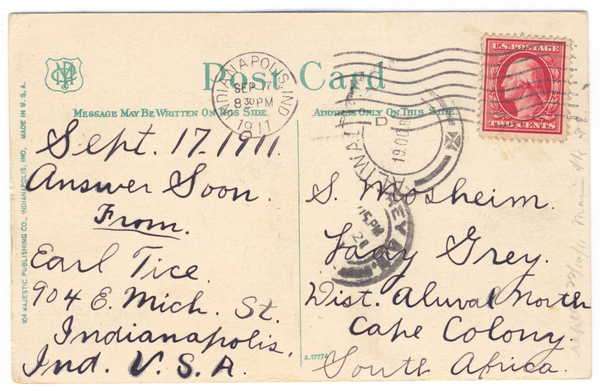 Post Card
MESSAGE MAY BE WRITTEN ON THIS SIDE
ADDRESS ONLY ON THIS SIDE.
INDIANAPOLIS, IND.
SEP 17
8 30 PM
1911
U.S. POSTAGE
TWO CENTS
Sept. 17. 1911.
Answer Soon.
From.
Earl Tice.
904 E. Mich. St.
Indianapolis,
Ind. U.S.A.
S. Mosheim.
Lady Grey.
Dist. Aluval North
Cape Colony.
South Africa.
104 MAJESTIC PUBLISHING CO., INDIANAPOLIS, IND. MADE IN U.S.A.